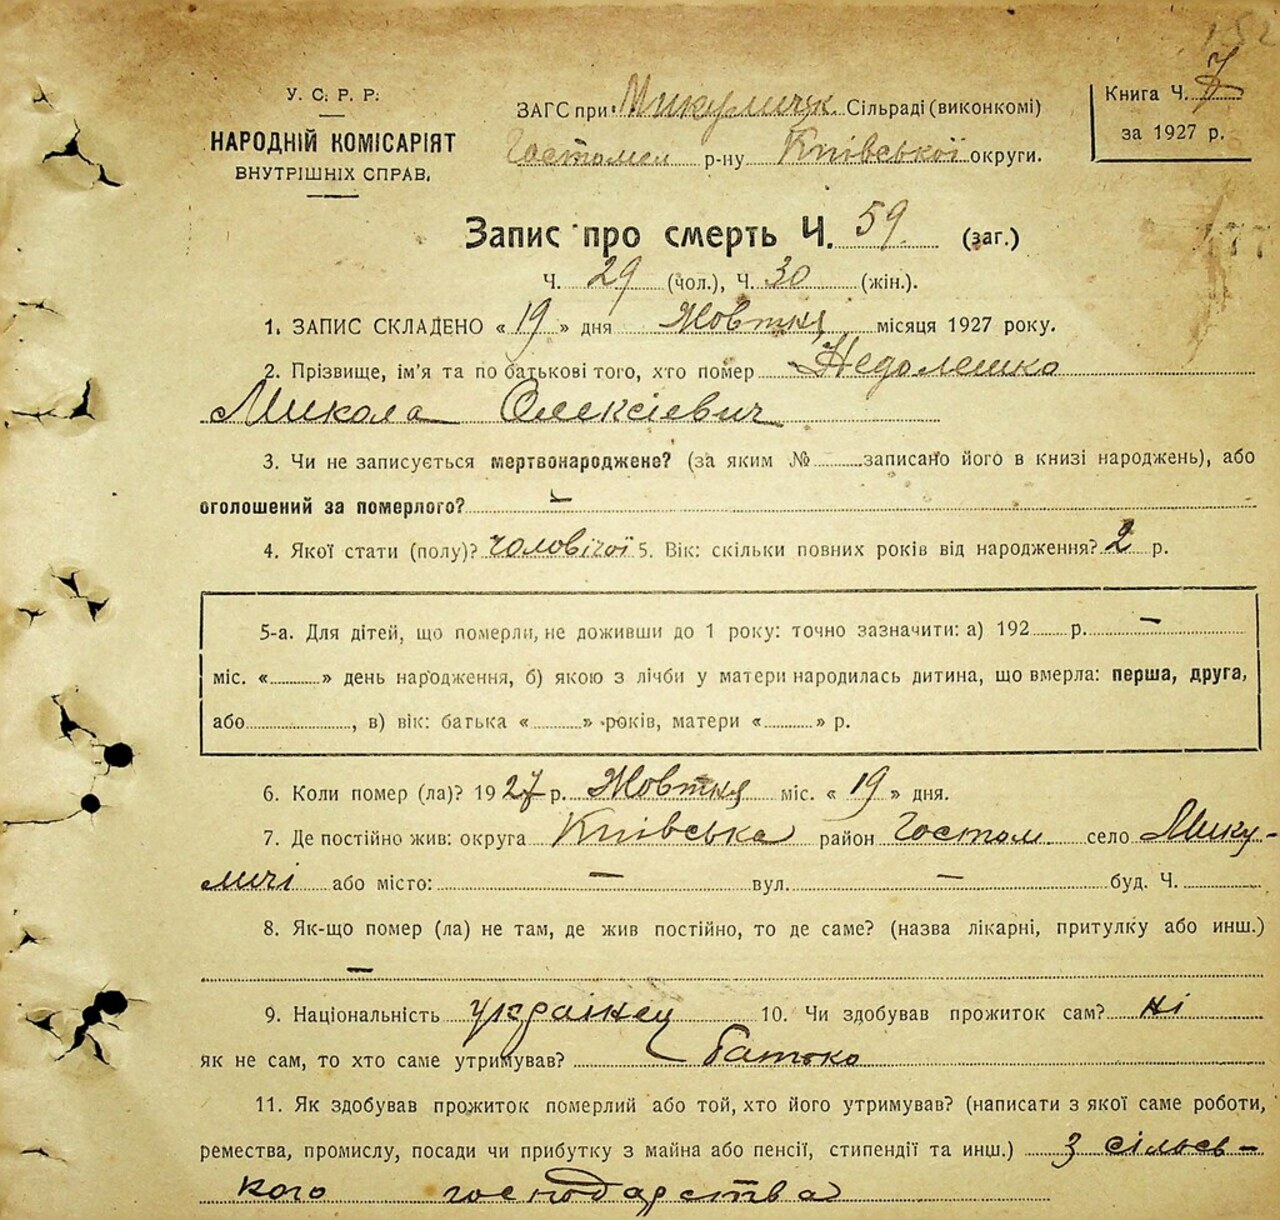 У. С. Р. Р.
НАРОДНІЙ КОМІСАРІЯТ
ВНУТРІШНІХ СПРАВ.
ЗАГС при Микулицьк. Сільраді (виконкомі)
Гостомел р-ну Київської округи.
Книга Ч. 7
за 1927 р.
Запис про смерть Ч. 59. (заг.)
Ч. 29 (чол.), Ч. 30 (жін.).
1. ЗАПИС СКЛАДЕНО « 19 » дня Жовтня місяця 1927 року.
2. Прізвище, ім'я та по батькові того, хто помер Недолешко
Микола Олексієвич
3. Чи не записується мертвонароджене? (за яким № записано його в книзі народжень), або
оголошений за померлого? —
4. Якої стати (полу)? чоловічої 5. Вік: скільки повних років від народження? 2 р.
5-а. Для дітей, що померли, не доживши до 1 року: точно зазначити: а) 192 р. —
міс. « » день народження, б) якою з лічби у матери народилась дитина, що вмерла: перша, друга,
або , в) вік: батька « » років, матери « » р.
6. Коли помер (ла)? 1927 р. Жовтня міс. « 19 » дня.
7. Де постійно жив: округа Київська район Гостом. село Мику-
личі або місто: — вул. — буд. Ч.
8. Як-що помер (ла) не там, де жив постійно, то де саме? (назва лікарні, притулку або инш.)
—
9. Національність українец 10. Чи здобував прожиток сам? ні
як не сам, то хто саме утримував? батько
11. Як здобував прожиток померлий або той, хто його утримував? (написати з якої саме роботи,
ремества, промислу, посади чи прибутку з майна або пенсії, стипендії та инш.) З сільсь-
кого господарства